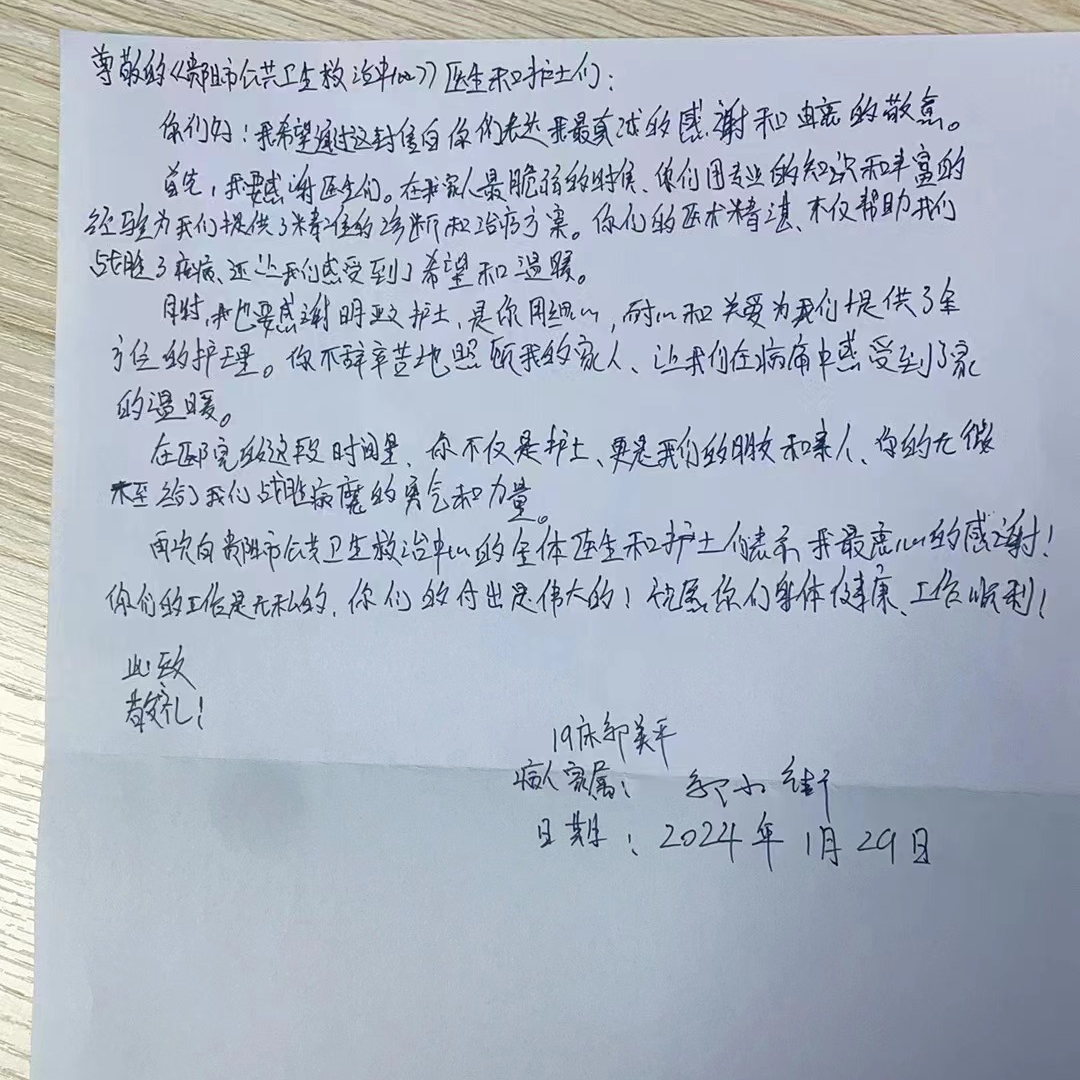 尊敬的《贵阳市公共卫生救治中心》医生和护士们：
你们好！我希望通过这封信向你们表达我最真诚的感谢和由衷的敬意。
首先，我要感谢医生们。在我家人最脆弱的时候、你们用专业的知识和丰富的
经验为我们提供了精准的诊断和治疗方案。你们的医术精湛、不仅帮助我们
战胜了疾病、还让我们感受到了希望和温暖。
同时，我也要感谢明政护士，是你用细心，耐心和关爱为我们提供了全
方位的护理。你不辞辛苦地照顾我的家人、让我们在病痛中感受到了家
的温暖。
在医院的这段时间里、你不仅是护士、更是我们的朋友和亲人、你的无微
不至给了我们战胜病魔的勇气和力量。
再次向贵阳市公共卫生救治中心的全体医生和护士们表示我最衷心的感谢！
你们的工作是无私的，你们的付出是伟大的！祝愿你们身体健康、工作顺利！
此致
敬礼！
19床郭美平
病人家属：郭小街
日期：2024年1月29日